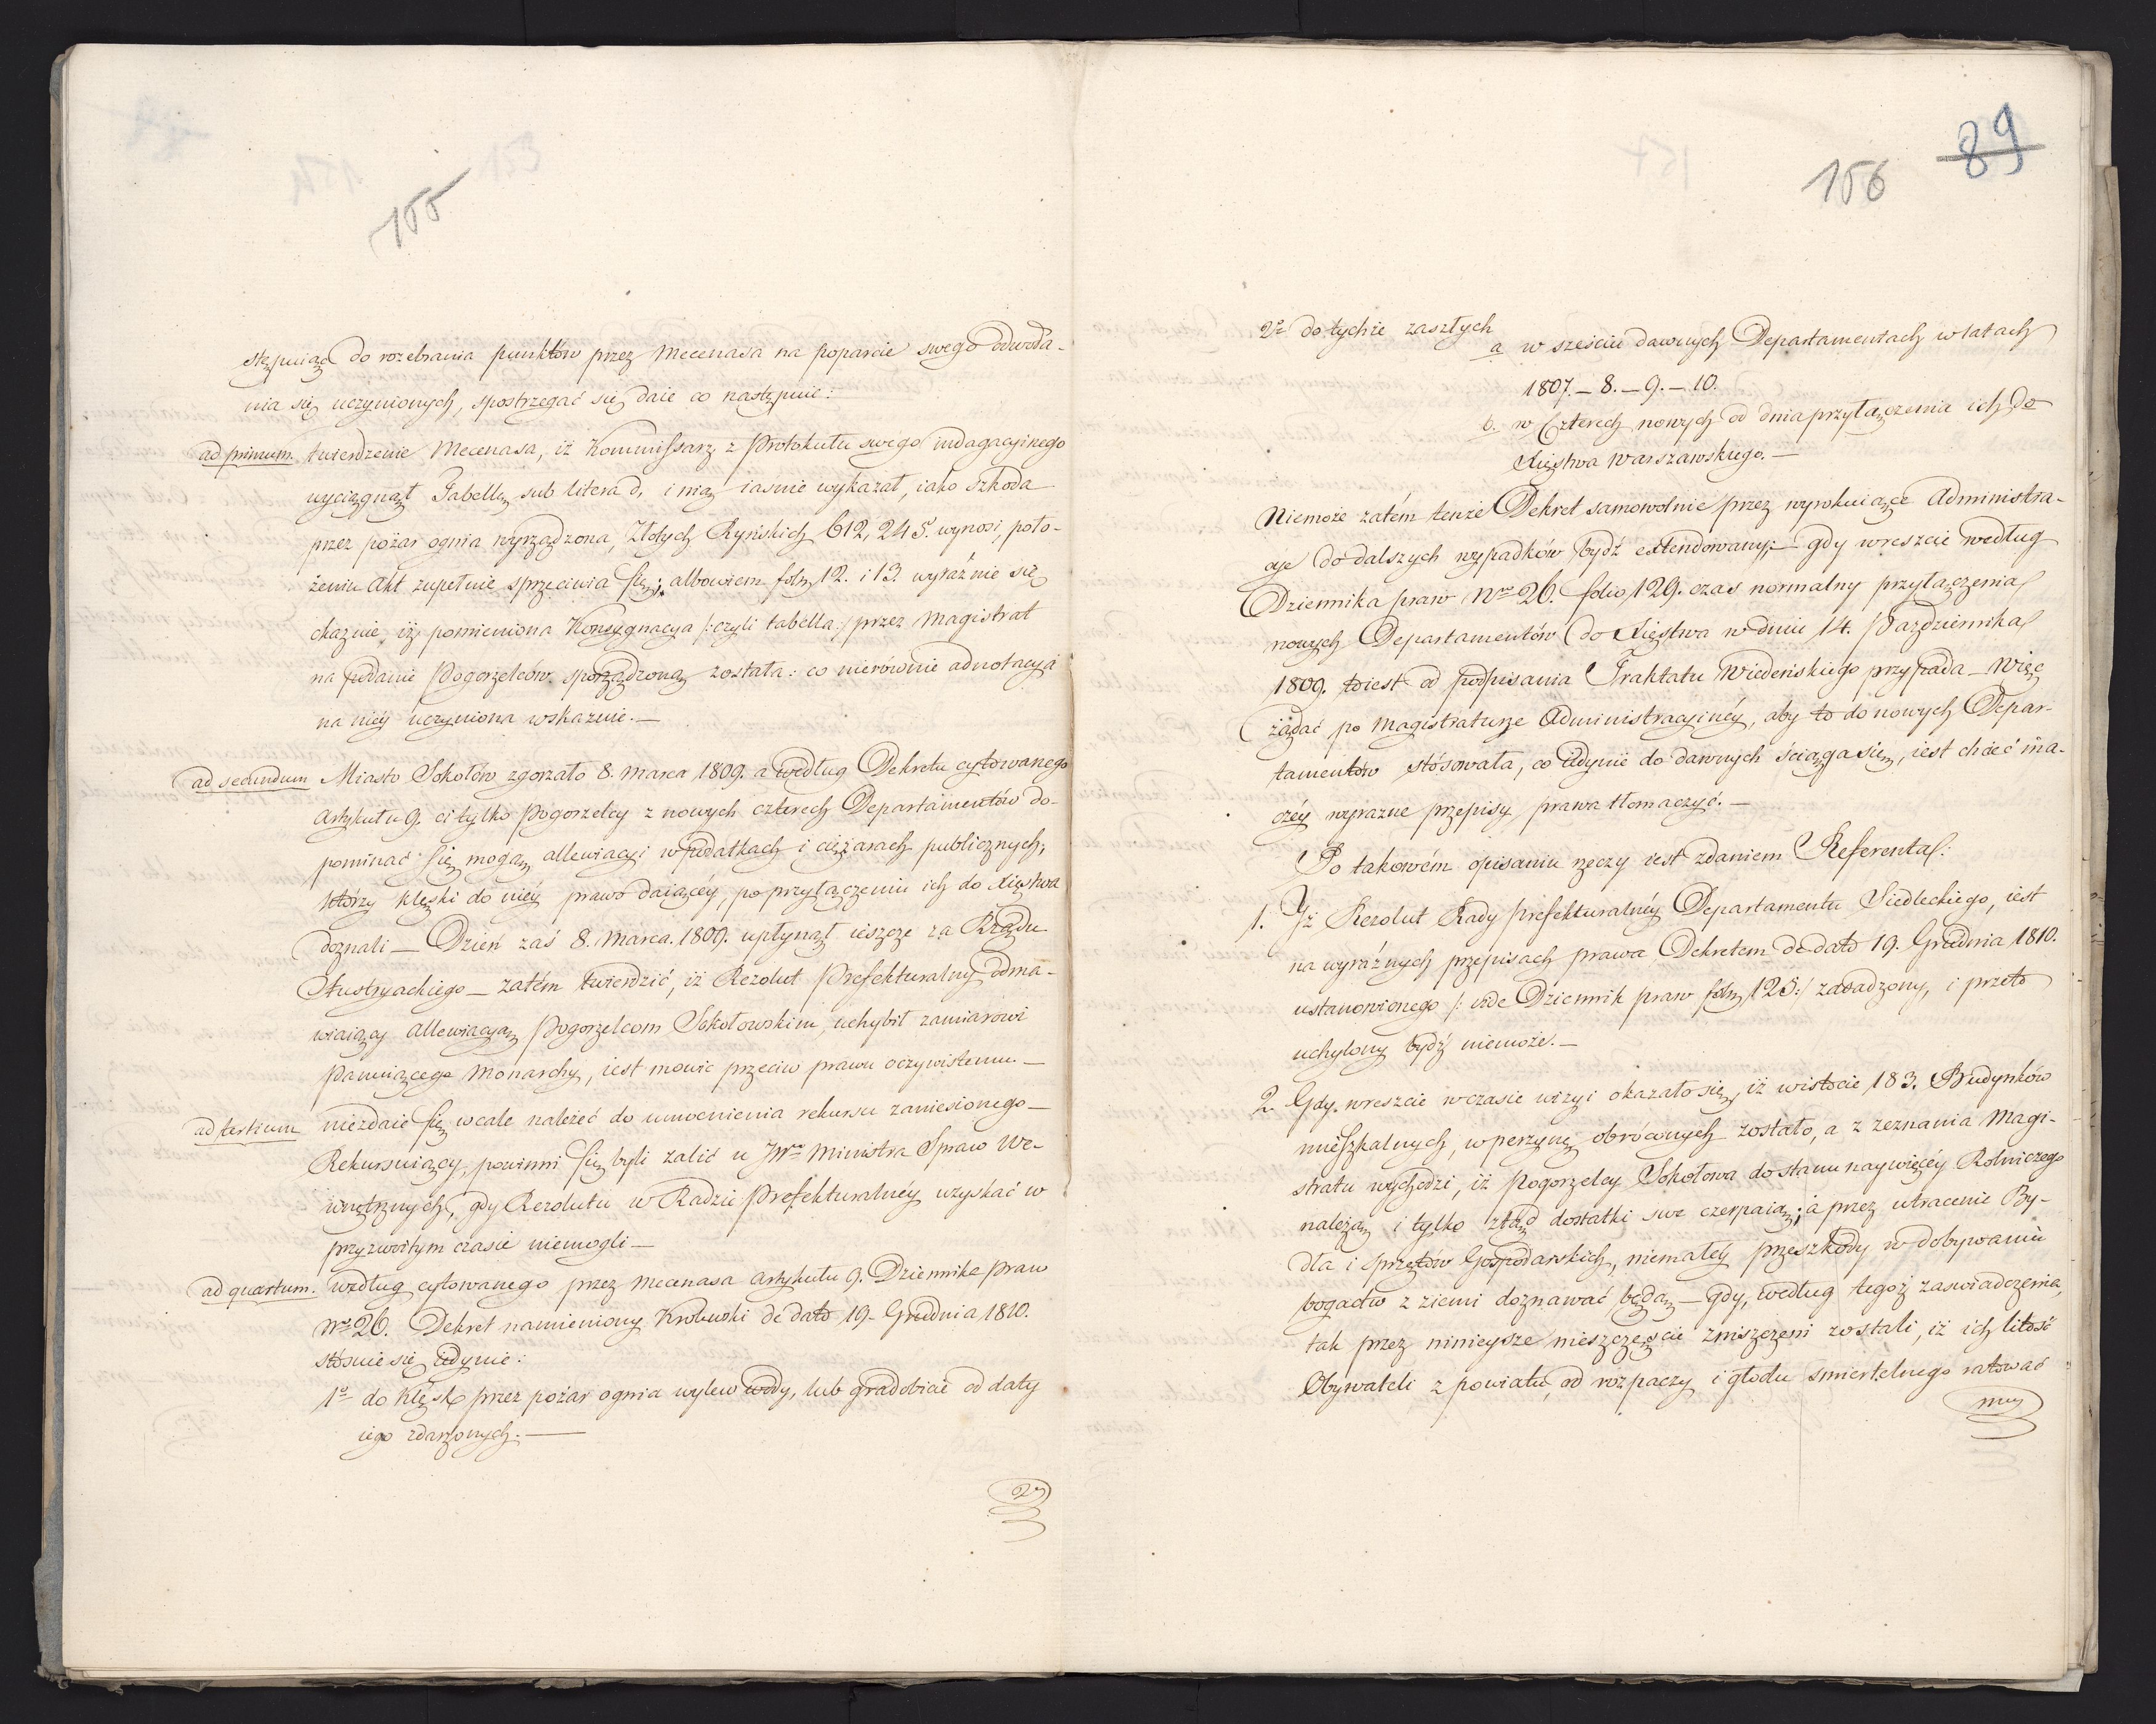 155
stępuiąc do rozebrania punktów przez Mecenasa na poparcie swego odwoła-
nia się uczynionych, spostrzegać się daie co następuie:
ad primum. twierdzenie Mecenasa, iż Kommissarz z Protokułu swego indagacyinego
wyciągnął Tabellę sub litera d, i nią iasnie wykazał, iako szkoda
przez pożar ognia wyrządzona, Złotych Ryńskich 612,245. wynosi, poło-
żeniu Akt zupełnie sprzeciwia się; albowiem foln 12. i 13. wyraźnie się
okazuie, iż pomieniona Konsygnacya /:czyli tabella:/ przez Magistrat
na podanie Pogorzelców sporządzoną została: co nierównie adnotacyia
na niéy uczyniona wskazuie.—
ad secundum Miasto Sokołów zgorzało 8. Marca 1809. a według Dekretu cytowanego
Artykułu 9. ci tylko Pogorzelcy z nowych czterech Departamentów do-
pominać się mogą allewiacyi w podatkach i ciężarach publicznych,
którzy klęski do niéy prawo daiącéy, po przyłączeniu ich do Xięstwa
doznali — Dzień zaś 8. Marca. 1809. upłynął ieszcze za Rządu
Austryackiego — zatém twierdzić, iż Rezolut Prefekturalny odma-
wiaiący allewiacyą Pogorzelcom Sokołowskim, uchybił zamiarowi
Panuiącego Monarchy, iest mowić przeciw prawu oczywistemu.—
ad tertium niezdaie się wcale należeć do umocnienia rekursu zaniesionego —
Rekursuiący, powinni się byli zalić u JWo Ministra Spraw We-
wnętrznych, gdy Rezolutu w Radzie Prefekturalnéy uzyskać w
przyzwoitym czasie niemogli —
ad quartum. według cytowanego przez Mecenasa Artykułu 9. Dziennika Praw
Nro 26. Dekret namieniony Krolewski de dato 19. Grudnia 1810.
stósuie się iedynie:
1o do klęsk przez pożar ognia wylew wody, lub gradobicie od daty
iego zdarzonych.—
2o
89
156
2o do tychże zaszłych
a w sześciu dawnych Departamentach w latach
1807.—8.—9.—10.
b. w Czterech nowych od dnia przyłączenia ich do
Xięstwa Warszawskiego.—
Niemoże zatém tenże Dekret samowolnie przez wyrokuiące Administra-
cye do dalszych wypadków bydź extendowany; gdy wreszcie według
Dziennika praw Nro 26. folio 129. czas normalny przyłączenia
nowych Departamentów do Xięstwa w dniu 14. Pazdziernika
1809. to iest od podpisania Traktatu Wiedeńskiego przypada — Więc
żądać po Magistraturze Administracyinéy, aby to do nowych Depar-
tamentów stósowała, co iedynie do dawnych ściąga się, iest chcieć ina-
czéy wyrazne przepisy prawa tłomaczyć.—
Po takowém opisaniu rzeczy iest zdaniem Referenta:
1. Iż Rezolut Rady Prefekturalnéy Departamentu Siedleckiego, iest
na wyraźnych przepisach prawa, Dekretem de dato 19. Grudnia 1810.
ustanowionego /: vide Dziennik praw foln 125:/ zasadzony, i przeto
uchylony bydź niemoże.—
2. Gdy wreszcie w czasie wizyi okazało się, iż w istocie 183. Budynków
mieszkalnych, w perzynę obróconych zostało, a z zeznania Magi-
stratu wychodzi, iż Pogorzelcy Sokołowa do stanu naywięcéy Rolniczego
należą i tylko ztąd dostatki swe czerpaią; a przez utracenie By-
dła i sprzętów Gospodarskich, niemałéy przeszkody w dobywaniu
bogactw z ziemi doznawać będą — gdy, według tegoż zaswiadczenia,
tak przez ninieysze nieszczęscie zniszczeni zostali, iż ich litość
Obywateli z powiatu, od rozpaczy i głodu smiertelnego ratować